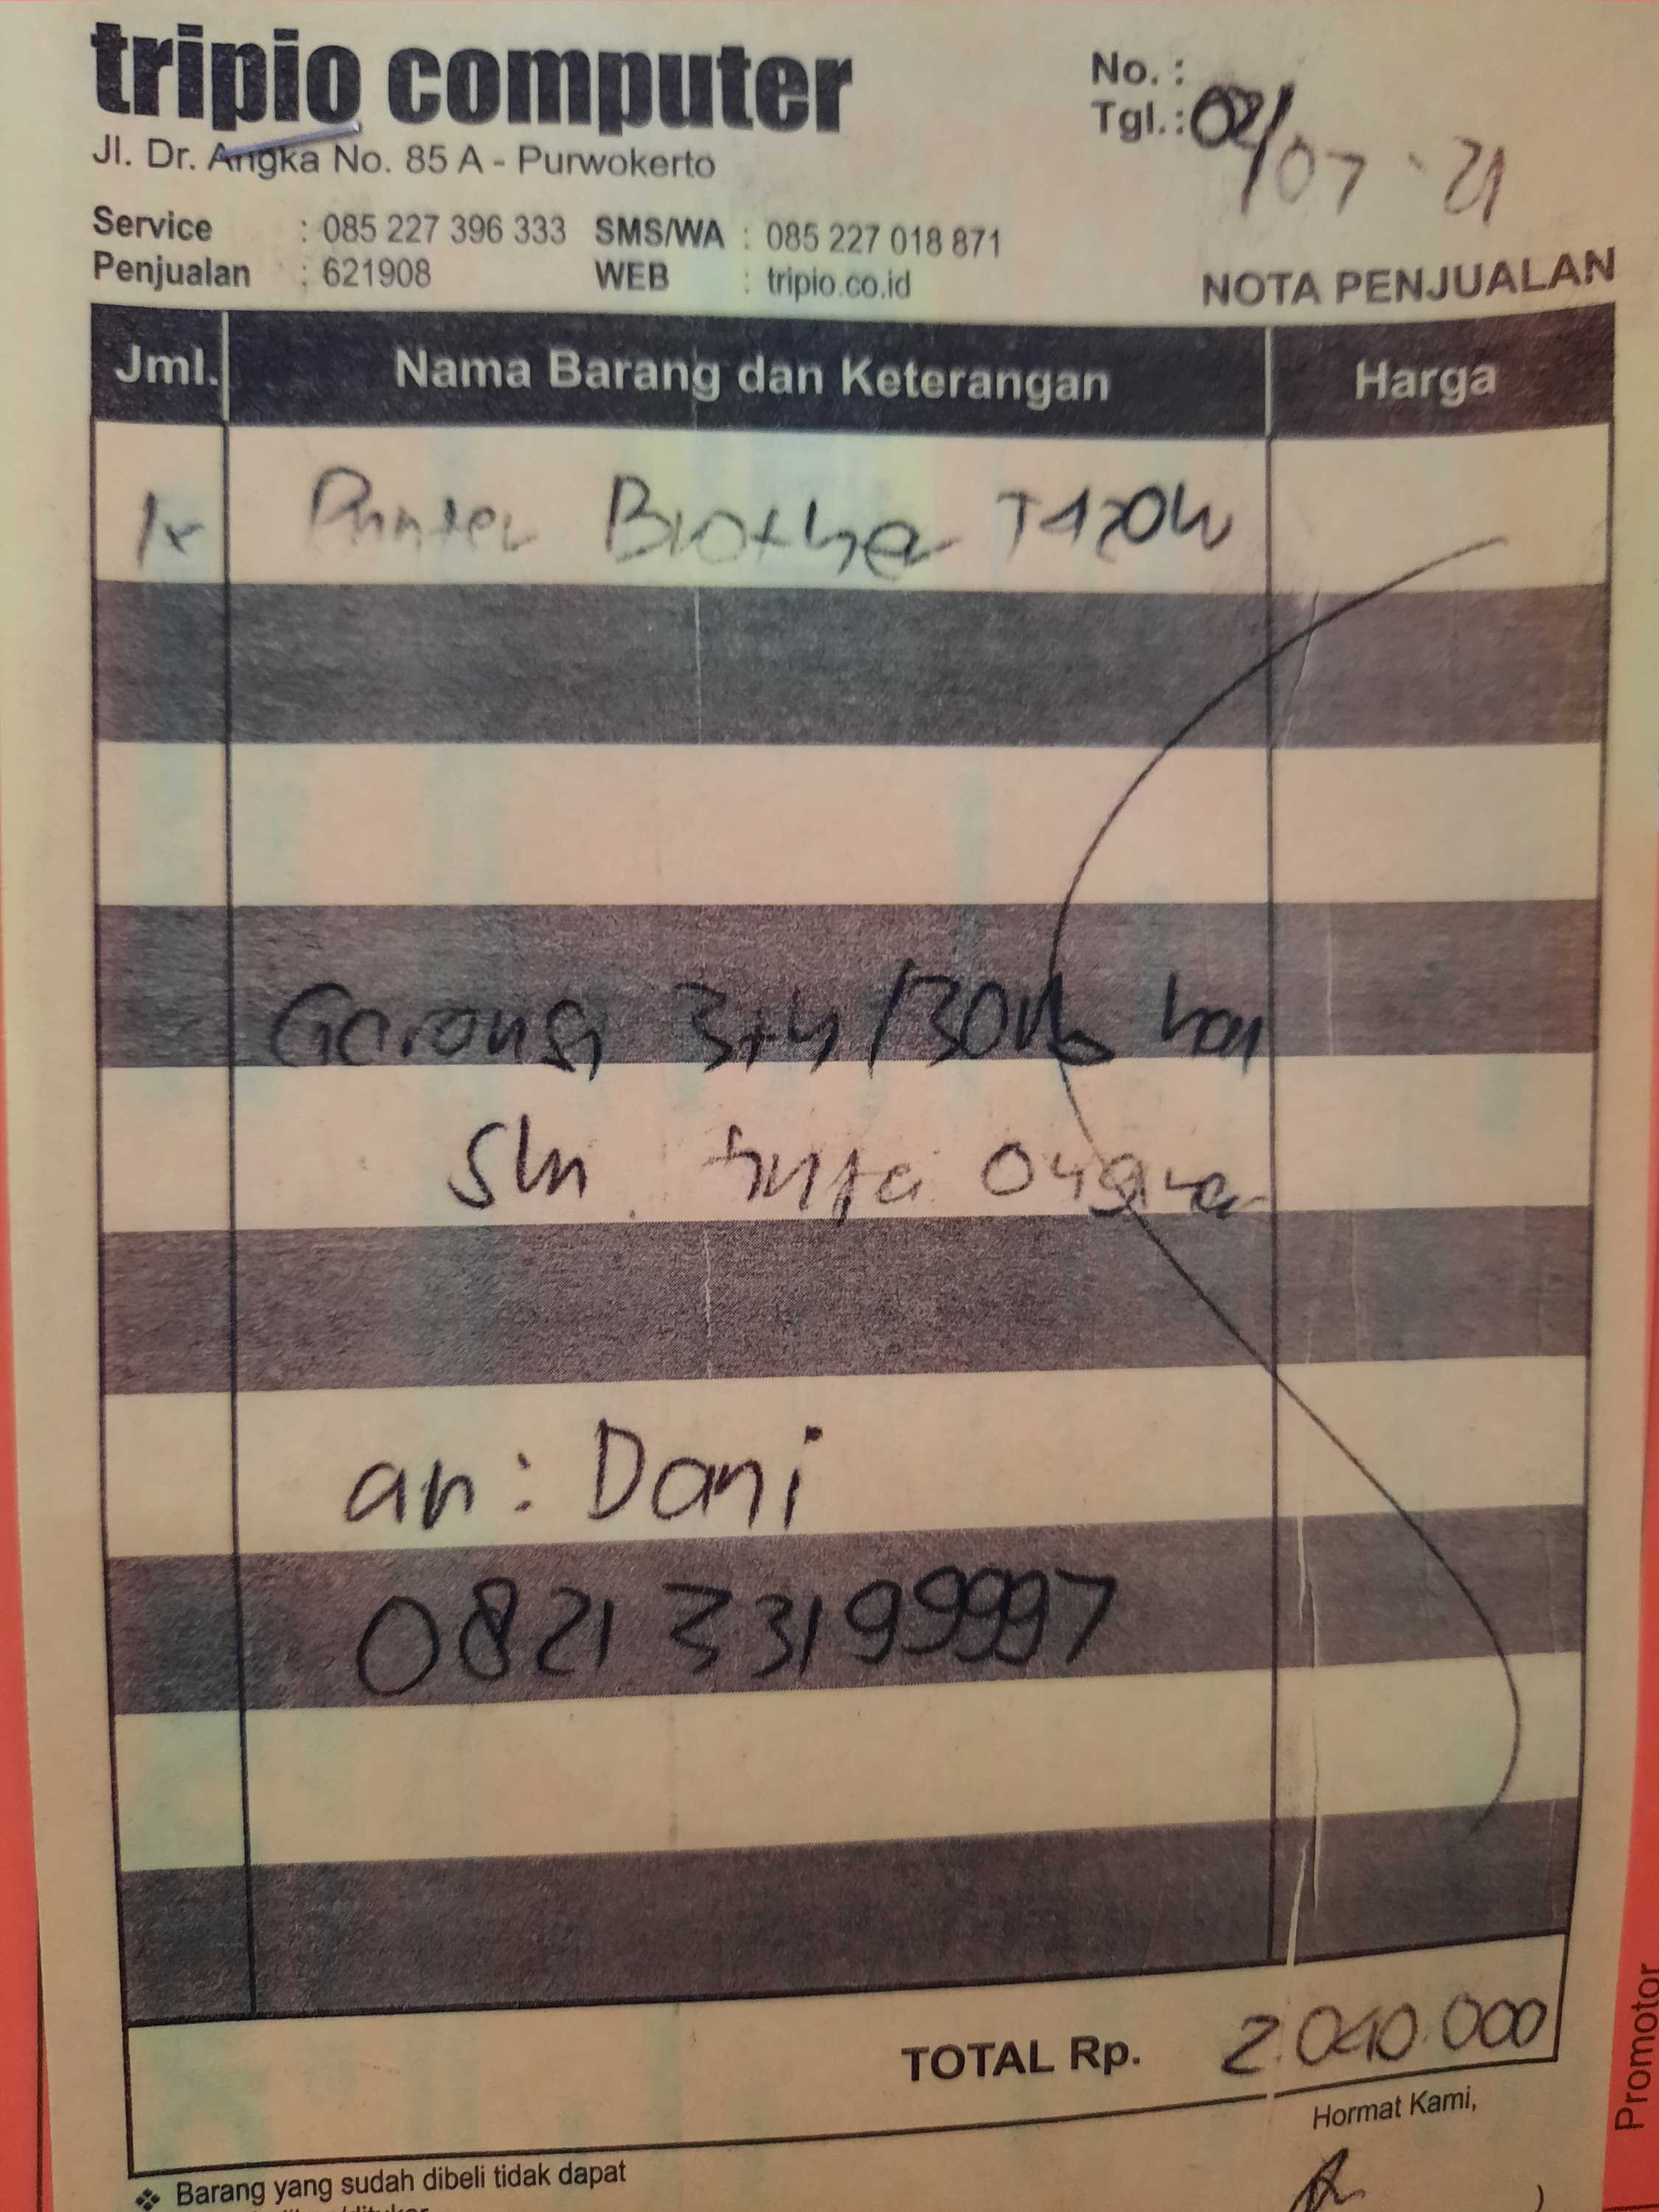 tripio computer
Jl. Dr. Angka No. 85 A - Purwokerto
No. :
Tgl. : 02/07-21
Service : 085 227 396 333 SMS/WA : 085 227 018 871
Penjualan : 621908 WEB : tripio.co.id
NOTA PENJUALAN
Jml. Nama Barang dan Keterangan Harga
1x Printer Brother T420W
Garansi 3th/30rb
Sln tinta
an: Dani
0821 33199997
TOTAL Rp. 2.040.000
Hormat Kami,
❖ Barang yang sudah dibeli tidak dapat
Promotor